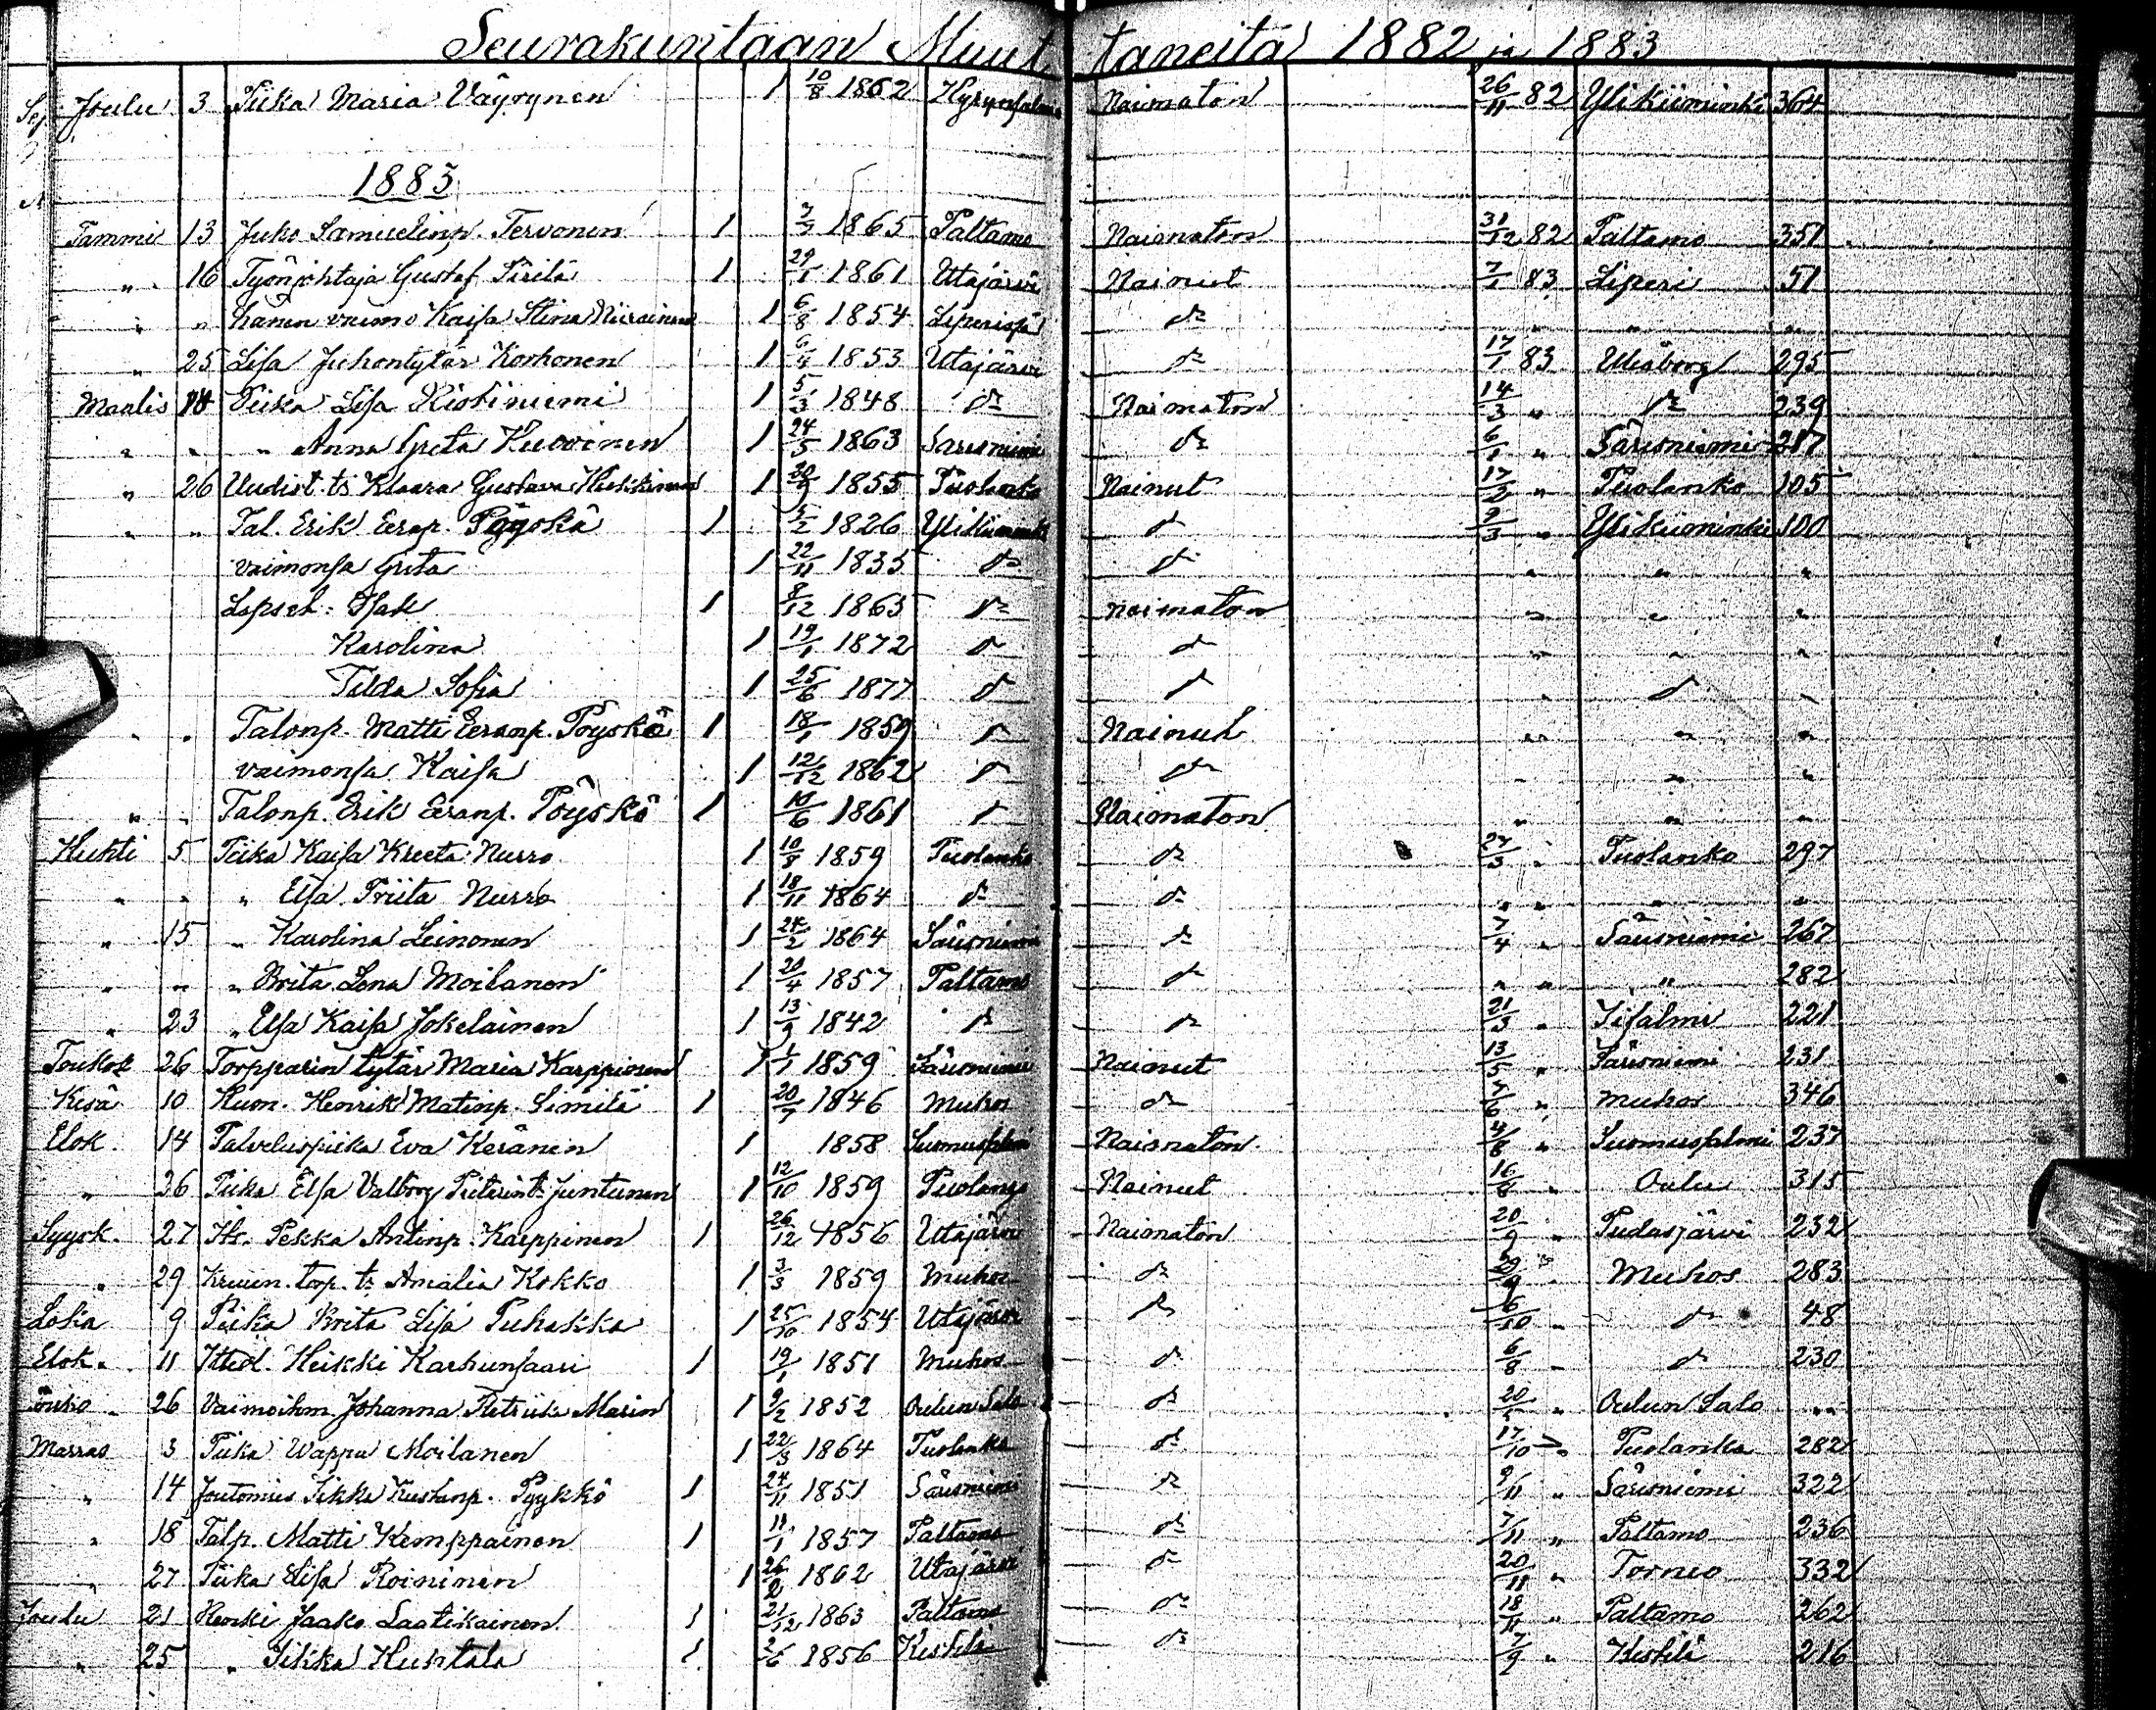 Seurakuntaan Muuttaneita 1882 ja 1883
Joulu 3 Piika Maria Väyrynen 1 10/8 1862 Hyrynsalmi Naimaton 26/11 82 Ylikiiminki 364
1883
Tammi 13 Juho Samuelinp. Tervonen 1 1865 Paltamo Naimaton 31/12 82 Paltamo 351
" 16 Työnjohtaja Gustaf Siirilä 1 29/1 1861 Utajärvi Nainut 7/1 83 Liperi 51
" " hänen vaimo Kaisa Stina Niirainen 1 6/8 1854 do " " "
" 25 Lisa Juhontytär Korhonen 1 6/4 1853 Utajärvi do 17/1 83 Uleåborg 295
Maalis Piika Lisa 1 5/3 1848 do Naimaton 14/3 " do 239
" " " Anna Greta 1 24/5 1863 Säräisniemi do 6/1 " Säräisniemi
" 26 Uudist. tr Klaara Gustava 1 1855 Puolanko Nainut 17/2 " Puolanko 105
" " Tal. Erik Eerop. Pöyskö 1 5/2 1826 Ylikiiminki do 9/3 " Ylikiiminki 100
vaimonsa Greta 1 22/11 1835 do do " " "
Lapset: Isak 1 8/12 1865 do naimaton " " "
Karolina 1 19/1 1872 do do " " "
Tilda Sofia 1 25/6 1877 do do " do "
" " Talonp. Matti Eeranp. Pöyskö 1 18/1 1859 do Nainut " " "
vaimonsa Kaisa 1 12/12 1862 do do " " "
" " Talonp. Erik Eeranp. Pöyskö 1 10/6 1861 do Naimaton " " "
Huhti 5 Piika Kaisa Kreeta Nurro 1 10/8 1859 Puolanko do 27/3 " Puolanko 297
" " " Elsa Priita Nurro 1 18/11 1864 do do " " " "
" 15 " Karolina Leinonen 1 24/2 1864 Säräisniemi do 7/4 " Säräisniemi 267
" " " Brita Lena Moilanen 1 20/4 1857 Paltamo do " " " 282
" 23 " Elsa Kaisa Jokelainen 1 13/9 1842 do do 21/3 " Iisalmi 221
Toukok 26 Torpparin tytär Maria Karppinen 1 1/1 1859 Säräisniemi Nainut 13/5 " Säräisniemi 231
Kesä 10 Huon. Henrik Matinp. Similä 1 20/7 1846 Muhos do " Muhos 346
Elok. 14 Palveluspiika Eva Keränen 1 1858 Suomussalmi Naimaton " Suomussalmi 237
" 26 Piika Elsa Valborg Pieterint. Juntunen 1 12/10 1859 Nainut 16/8 " Oulu 315
Syysk. 27 Its. Pekka Antinp. Karppinen 1 26/12 1856 Utajärvi Naimaton 20/9 " Pudasjärvi 232
" 29 Kruun. torp. tr Amalia Kokko 1 3/3 1859 Muhos do 29/9 " Muhos 283
Loka 9 Piika Brita Lisa Puhakka 1 25/10 1854 Utajärvi do 6/10 " do 48
Elok. 11 Heikki Karhunsaari 1 19/1 1851 Muhos do 6/8 " do 230
" 26 Vaimoihm. Johanna Marin 1 9/2 1852 Oulun Salo do 20/5 " Oulun Salo "
Marras 3 Piika Wappu Moilanen 1 22/3 1864 Puolanko do 17/10 " Puolanka 282
" 14 Joutomies Pekka Kustanp. Pyykkö 1 24/11 1851 Säräisniemi do 9/11 " Säräisniemi 322
" 18 Talp. Matti Kemppainen 1 11/1 1857 Paltamo do 7/11 " Paltamo 236
" 27 Piika Lisa Roininen 1 1862 Utajärvi do 20/11 " Tornio 332
Joulu 21 Renki Jaako Laatikainen 1 21/12 1863 Paltamo do 18/11 " Paltamo 262
" 25 " Pekka Huhtala 1 2/6 1856 Kestilä do 7/9 " Kestilä 216